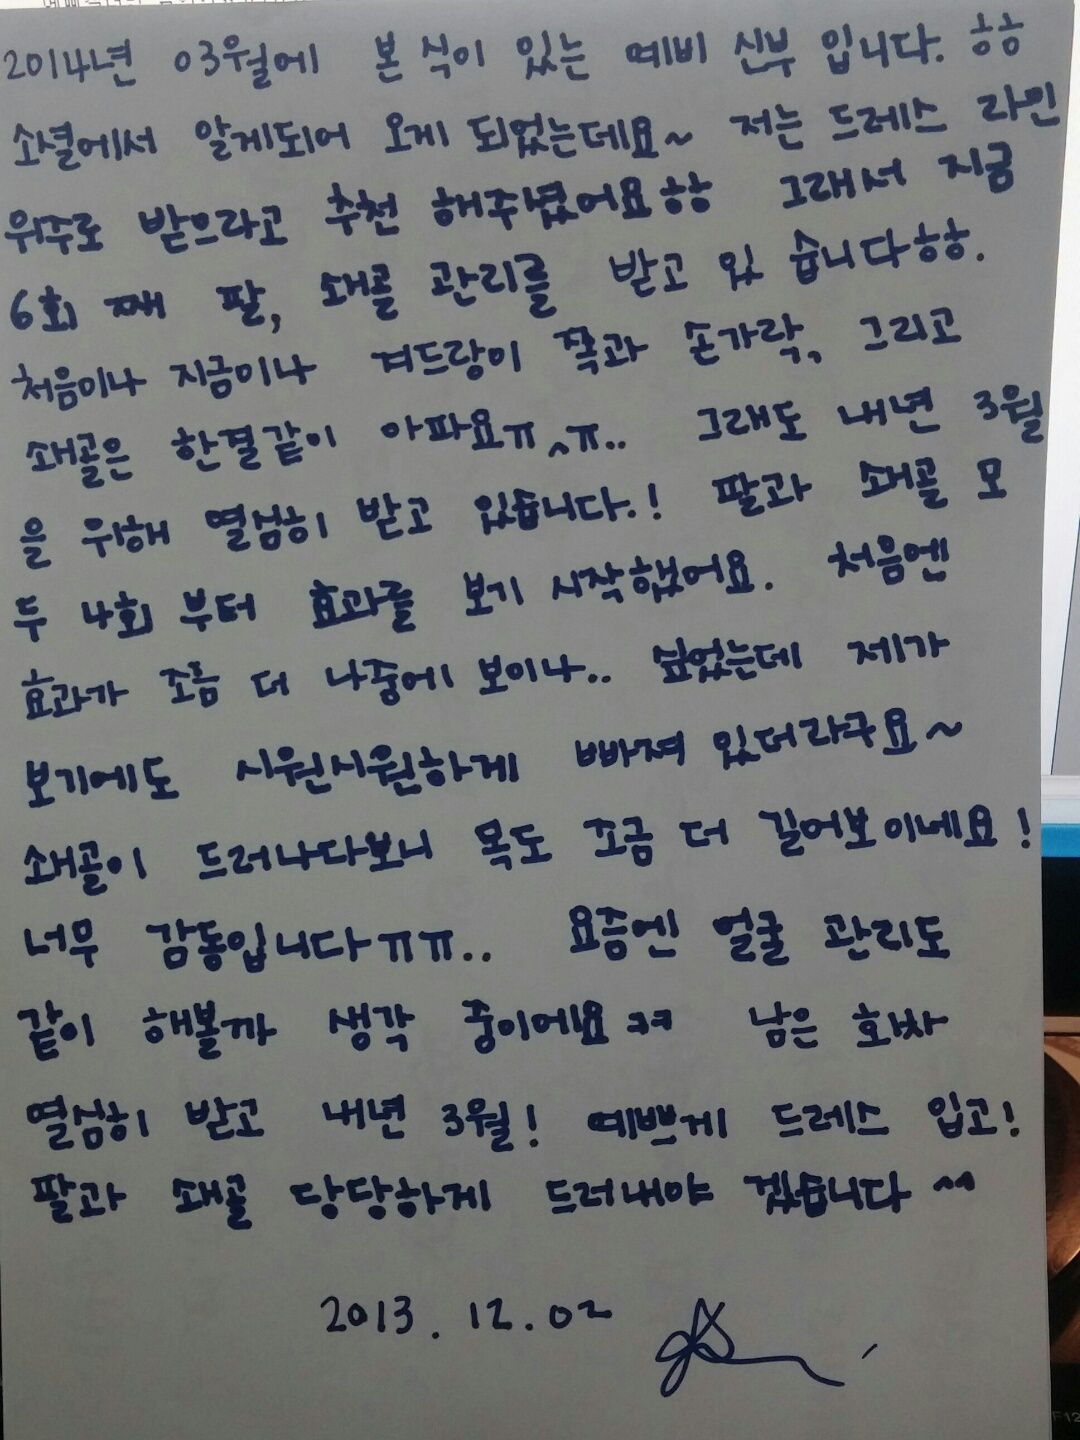 2014년 03월에 본식이 있는 예비 신부 입니다. ㅎㅎ
소셜에서 알게되어 오게 되었는데요~ 저는 드레스 라인
위주로 받으라고 추천 해주셨어요ㅎㅎ 그래서 지금
6회 째 팔, 쇄골 관리를 받고 있습니다ㅎㅎ.
처음이나 지금이나 겨드랑이 쪽과 손가락, 그리고
쇄골은 한결같이 아파요ㅠ^ㅠ.. 그래도 내년 3월
을 위해 열심히 받고 있습니다.! 팔과 쇄골 모
두 4회 부터 효과를 보기 시작했어요. 처음엔
효과가 조금 더 나중에 보이나.. 싶었는데 제가
보기에도 시원시원하게 빠져 있더라구요~
쇄골이 드러나다보니 목도 조금 더 길어보이네요!
너무 감동입니다ㅠㅠ.. 요즘엔 얼굴 관리도
같이 해볼까 생각 중이에요ㅋㅋ 남은 회차
열심히 받고 내년 3월! 예쁘게 드레스 입고!
팔과 쇄골 당당하게 드러내야 겠습니다 ^^
2013. 12. 02
F12